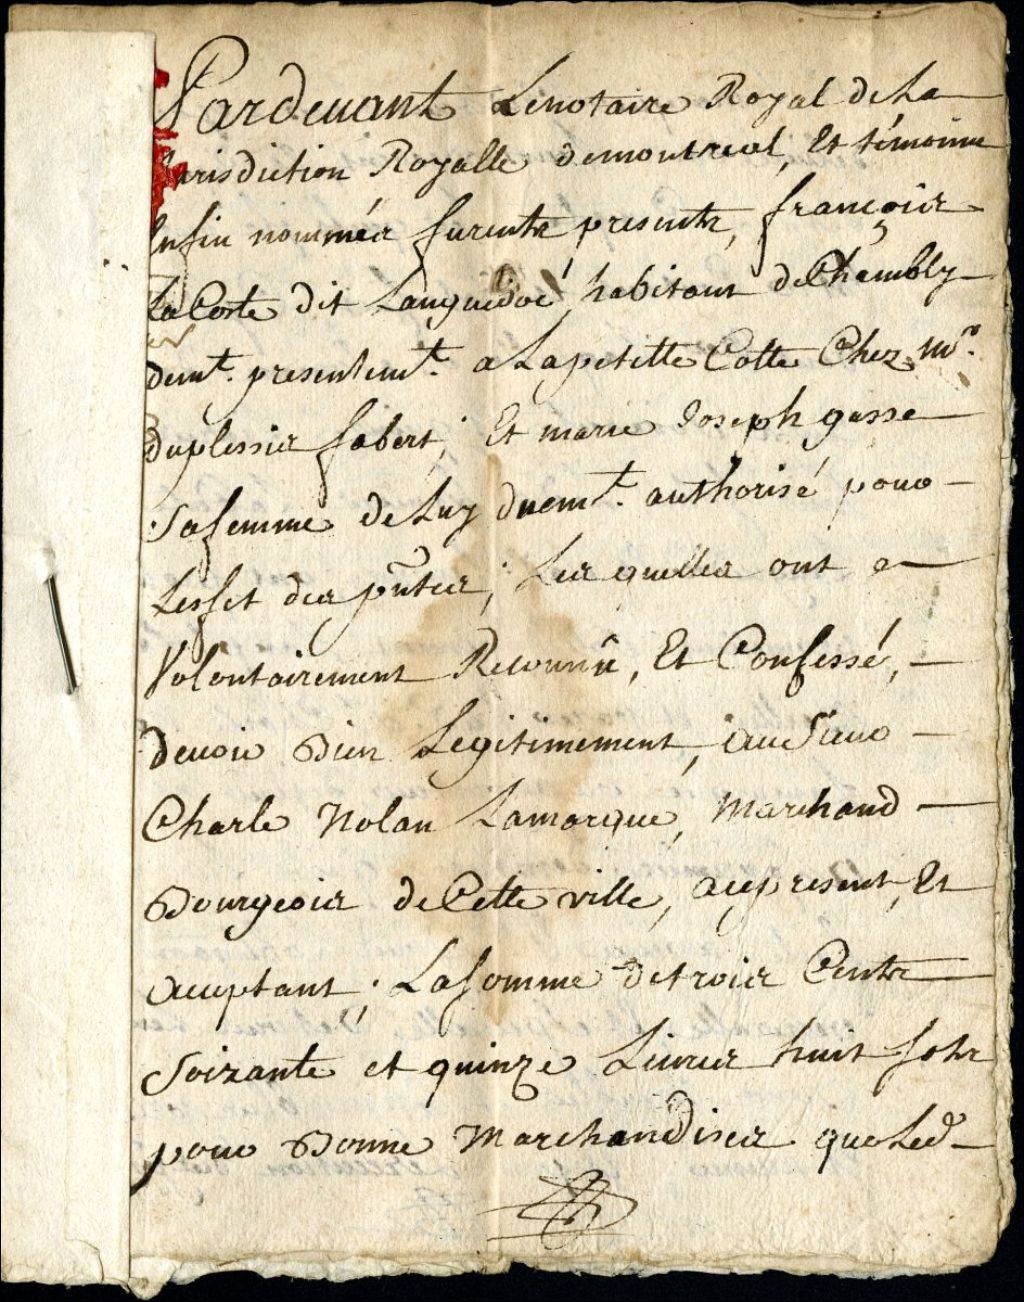 Pardevant Lenotaire Royal dela
Jurisdiction Royalle demontreal, Et témoins
Enfin nommés furents presents, françois
LaCoste dit Languedoc, habitant deChambly
demt. presentemt. a Lapetitte Cotte Chez mr.
duplessis fabert; Et marie Joseph gasse
Safemme de Luy duemt. authorisé pour
Leffet des pntes; Les quelles ont
Volontairement Reconnû, Et Confessé,
devoir Bien Legitimement, au Sieur
Charle Nolan Lamarque, Marchand
Bourgeois deCette ville, acepresent, Et
aceptant; Lasomme detrois Cents
Soixante et quinze Livres huit sols
pour Bonne Marchandises queLed